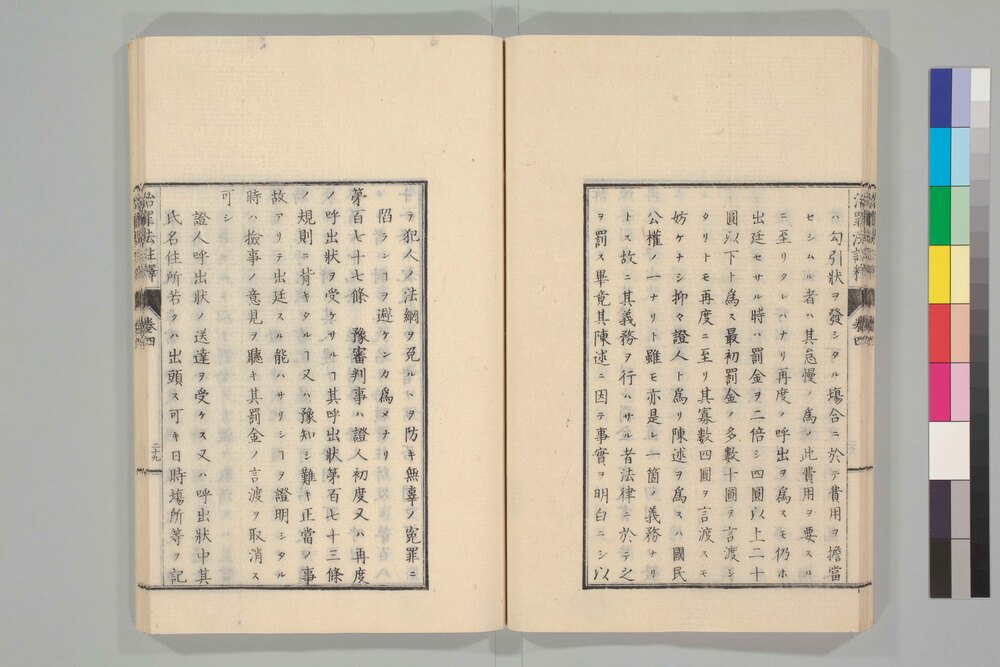 ハ勾引狀ヲ發シタル塲合ニ於テ費用ヲ擔當
セシムル者ハ其怠慢ノ爲メノ此費用ヲ要スル
ニ至リタレハナリ再度ノ呼出ヲ爲スモ仍ホ
出廷セサル時ハ罰金ヲ二倍シ四圓以上二十
圓以下ト爲ス最初罰金ノ多數十圓ヲ言渡シ
タリトモ再度ニ至リ其寡數四圓ヲ言渡スモ
妨ケナシ抑々證人ト爲リ陳述ヲ爲スハ國民
公權ノ一ナリト雖モ亦是レ一箇ノ義務ナリ
トス故ニ其義務ヲ行ハサル者法律ニ於テ之
ヲ罰ス畢竟其陳述ニ因テ事實ヲ明白ニシ以
治罪法註釋
卷四
テ犯人ノ法網ヲ免ルヽヲ防キ無辜ノ冤罪ニ
陷ランヿヲ避ケンカ爲メナリ
第百七十七條 豫審判事ハ證人初度又ハ再度
ノ呼出狀ヲ受ケサルヿ其呼出狀第百七十三條
ノ規則ニ背キタルヿ又ハ豫知シ難キ正當ノ事
故アリテ出廷スル能ハサリシヿヲ證明シタル
時ハ撿事ノ意見ヲ聽キ其罰金ノ言渡ヲ取消ス
可シ
證人呼出狀ノ送達ヲ受ケス又ハ呼出狀中其
氏名住所若クハ出頭ス可キ日時塲所等ヲ記
治罪法註釋
卷四
二十九